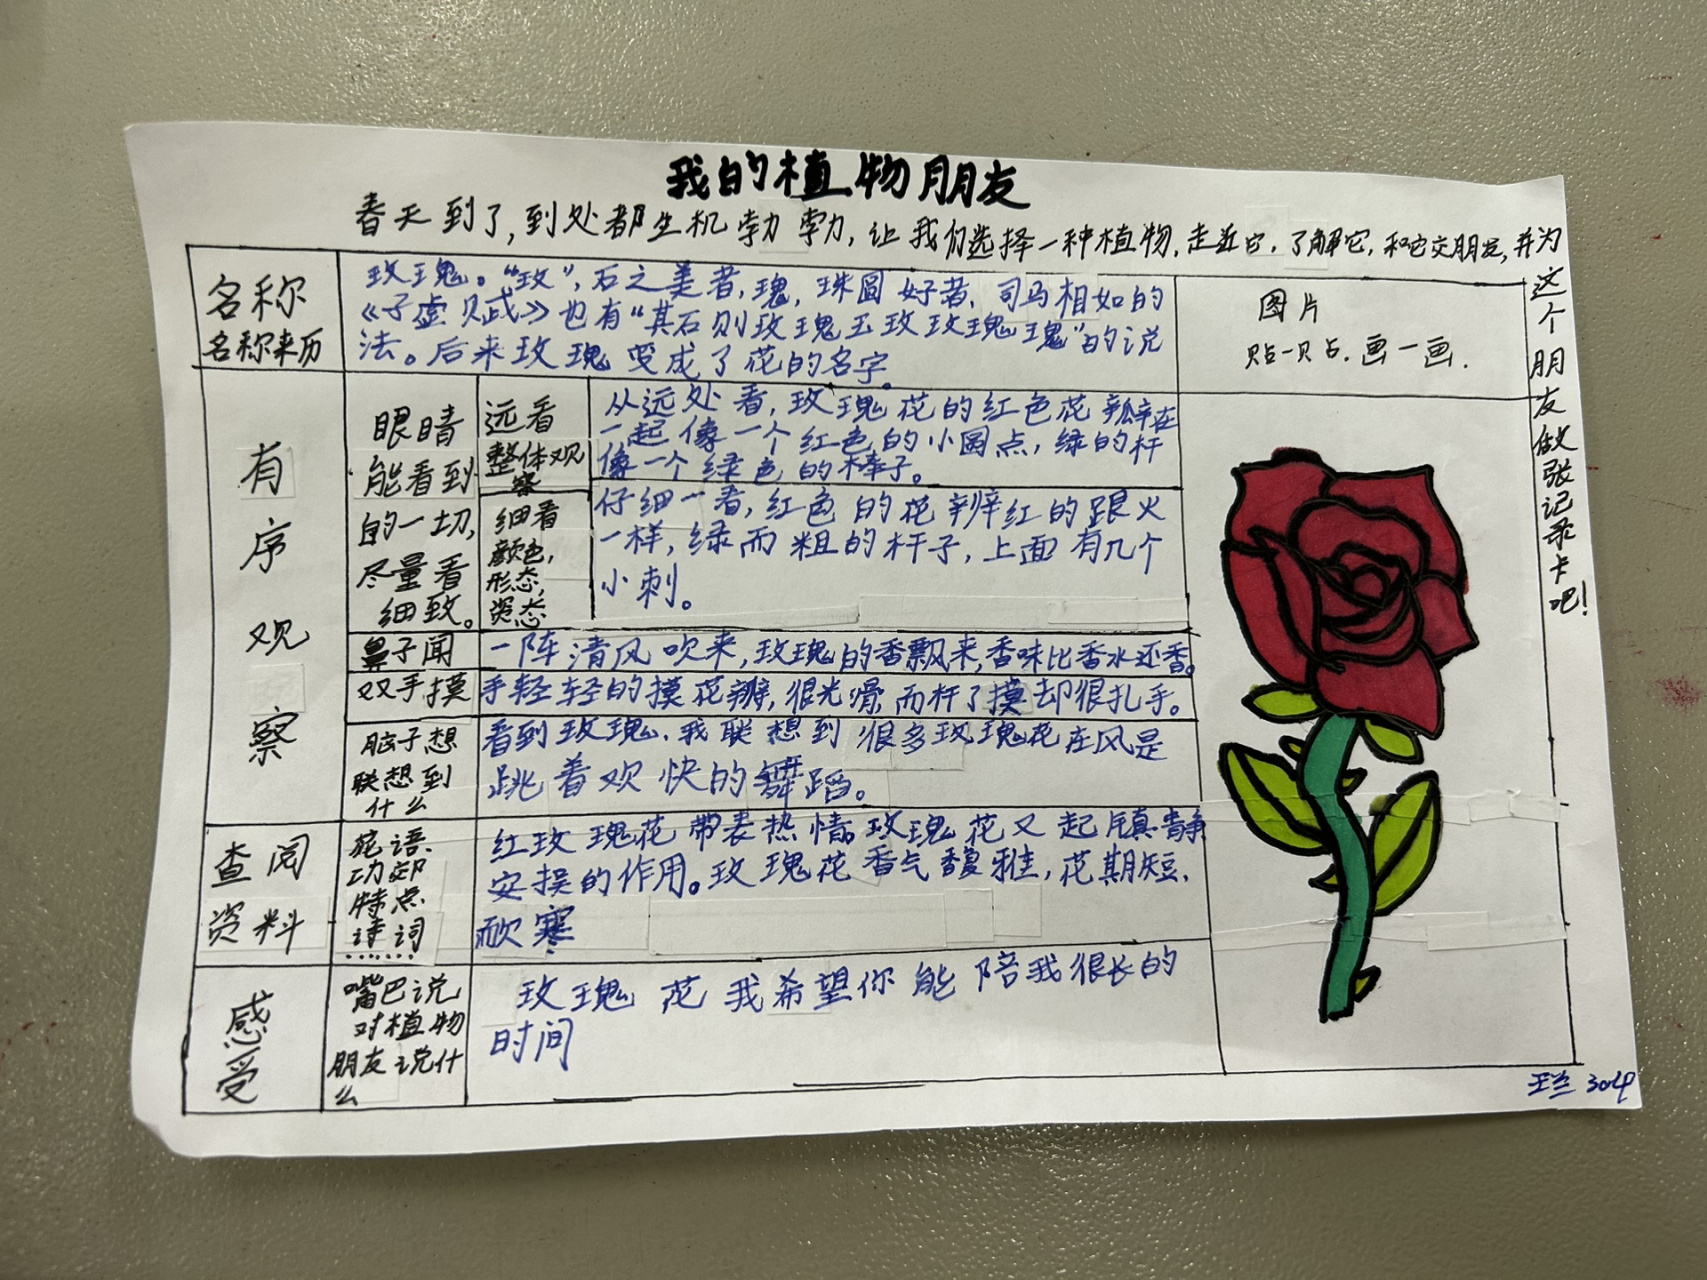 我的植物朋友
春天到了,到处都生机勃勃,让我们选择一种植物,走近它,了解它,和它交朋友,并为
这个朋友做张记录卡吧!
名称
名称来历
玫瑰。“玫”,石之美者,瑰,珠圆好者,司马相如的
《子虚赋》也有“其石则玫瑰玉玫玫瑰瑰”的说
法。后来玫瑰变成了花的名字。
图片
贴一贴.画一画.
有序观察
眼睛
能看到
的一切,
尽量看
细致。
远看
整体观
察
从远处看,玫瑰花的红色花瓣在
一起像一个红色的小圆点,绿的杆
像一个绿色的棒子。
细看
颜色,
形态,
姿态
仔细一看,红色的花辨红的跟火
一样,绿而粗的杆子,上面有几个
小刺。
鼻子闻
一阵清风吹来,玫瑰的香飘来,香味比香水还香。
双手摸
手轻轻的摸花瓣,很光滑,而杆了摸却很扎手。
脑子想
联想到
什么
看到玫瑰.我联想到很多玫瑰花在风是
跳着欢快的舞蹈。
查阅
资料
花语.
功却
特点
诗词
……
红玫瑰花带表热情。玫瑰花又起镇静
安损的作用。玫瑰花香气馥雅,花期短.
耐寒
感受
嘴巴说
对植物
朋友说什
么
玫瑰花我希望你能陪我很长的
时间
王兰 304